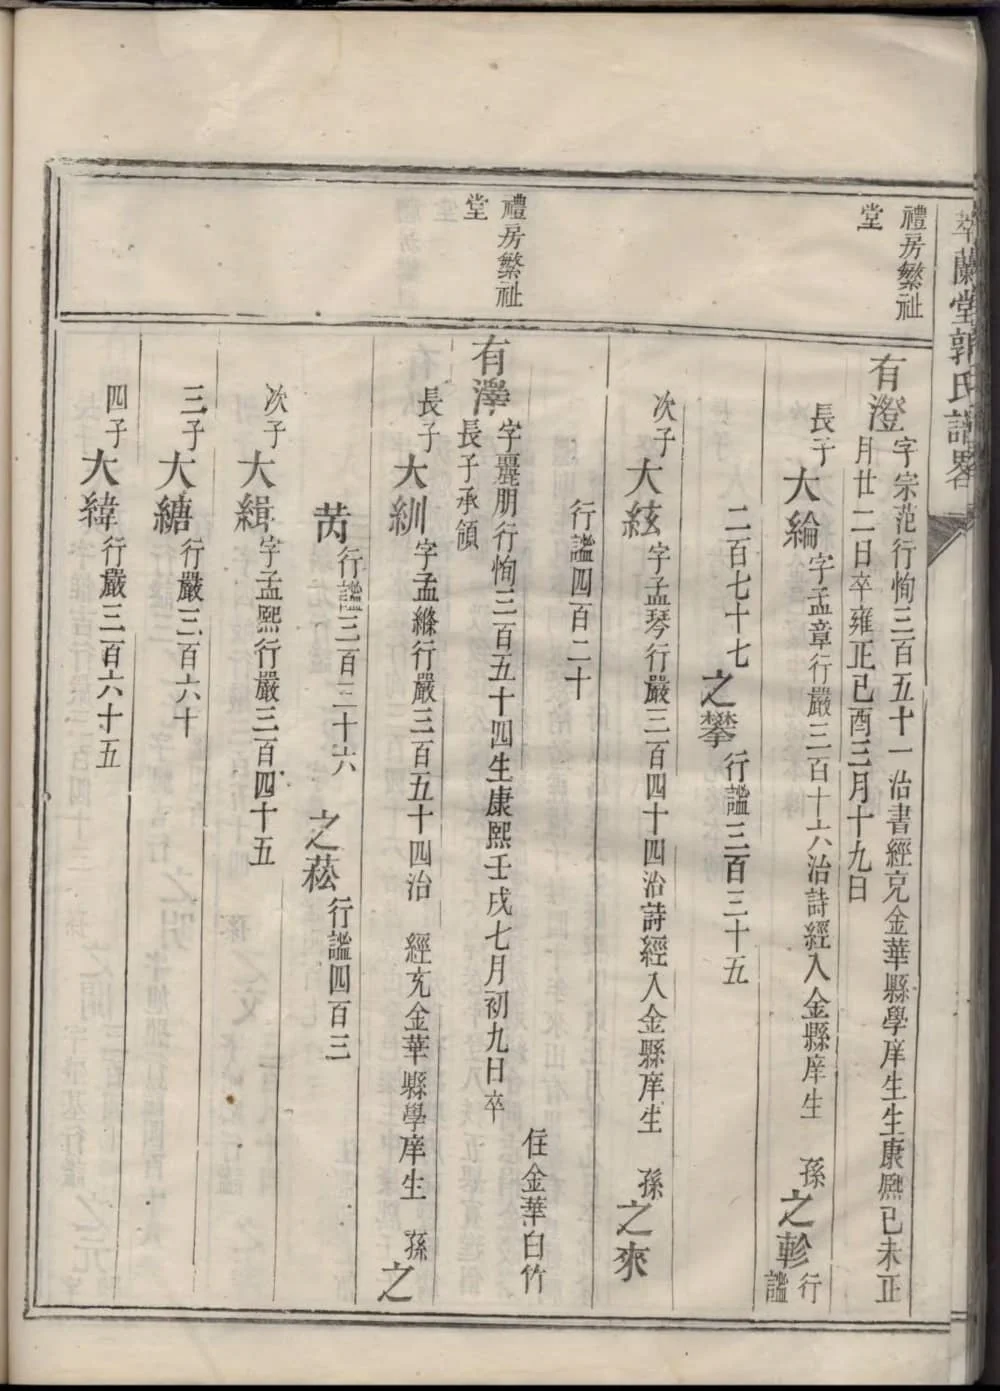 萃蘭堂郭氏譜畧
禮房繁祉
堂
有澄
字宗范行恂三百五十一治書經充金華縣學庠生生康熙己未正
月廿二日卒雍正己酉三月十九日
長子大綸字孟章行嚴三百十六治詩經入金縣庠生 孫之軫行
謐
二百七十七之攀行謐三百三十五
次子大絃字孟琴行嚴三百四十四治詩經入金縣庠生 孫之來
行謐四百二十
禮房繁祉
堂
住金華白竹
有澤
字麗朋行恂三百五十四生康熙壬戌七月初九日卒
長子承領
長子大紃字孟縧行嚴三百五十四治 經充金華縣學庠生 孫之
芮行謐三百三十六 之菘行謐四百三
次子大緝字孟熙行嚴三百四十五
三子大縿行嚴三百六十
四子大緯行嚴三百六十五